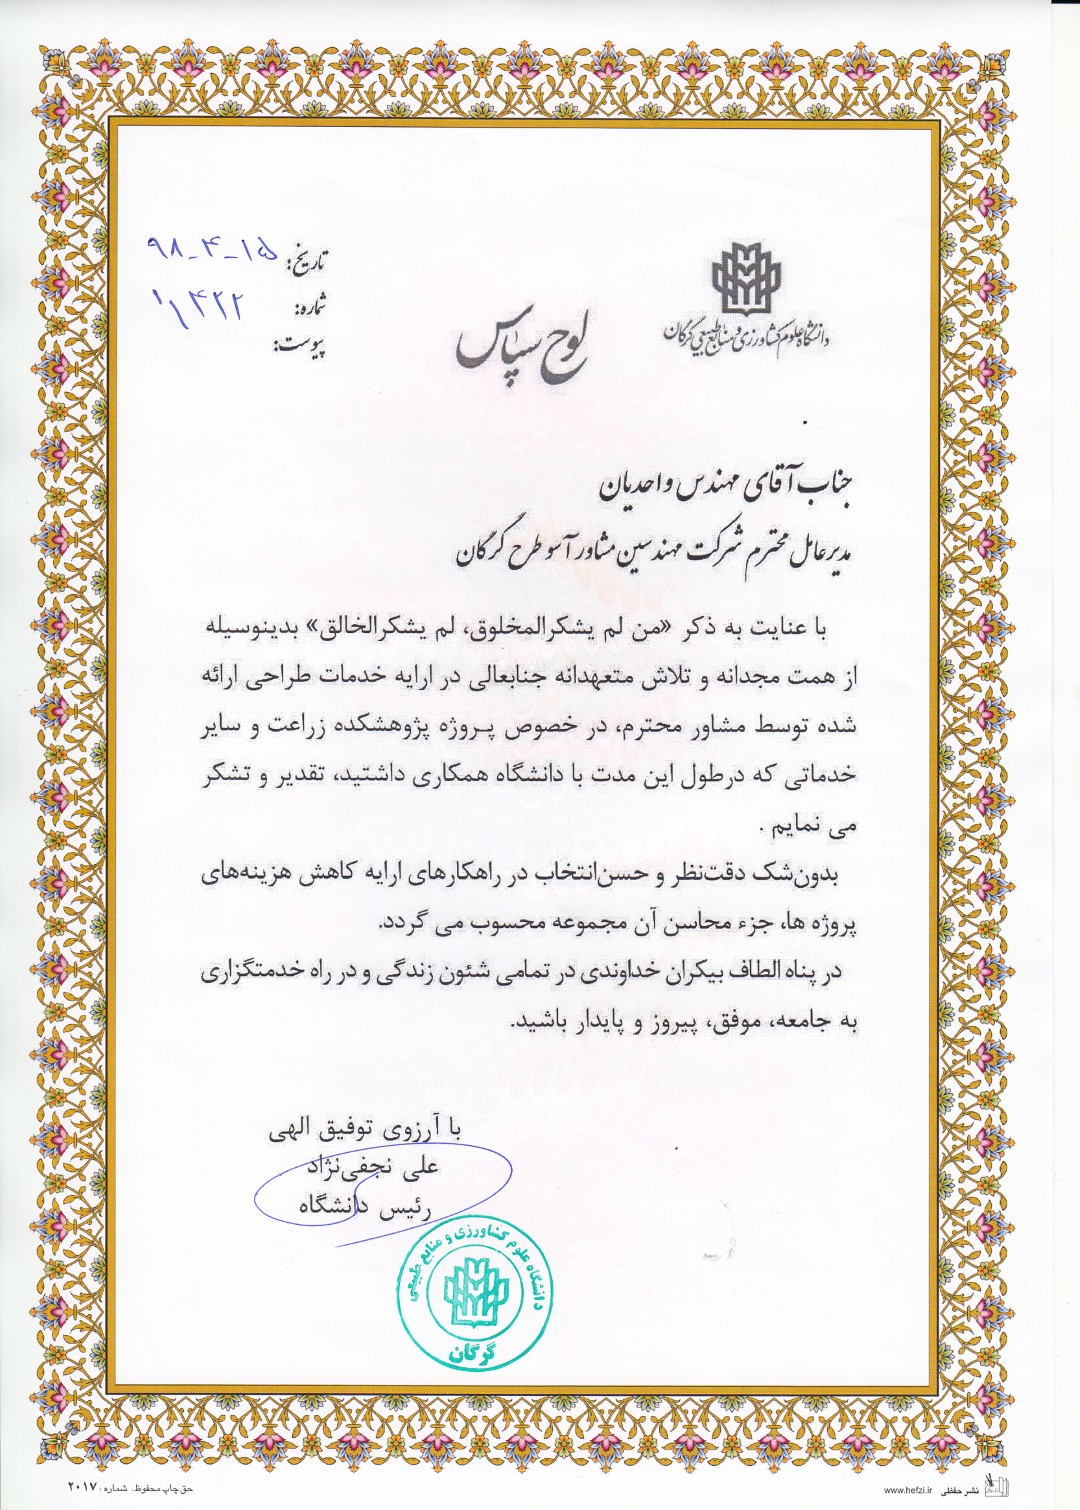 تاریخ: ۹۸-۴-۱۵
شماره:
پیوست:
دانشگاه علوم کشاورزی و منابع طبیعی گرگان
لوح سپاس
جناب آقای مهندس واحدیان
مدیرعامل محترم شرکت مهندسین مشاور آسو طرح گرگان
با عنایت به ذکر «من لم یشکرالمخلوق، لم یشکرالخالق» بدینوسیله
از همت مجدانه و تلاش متعهدانه جنابعالی در ارایه خدمات طراحی ارائه
شده توسط مشاور محترم، در خصوص پروژه پژوهشکده زراعت و سایر
خدماتی که درطول این مدت با دانشگاه همکاری داشتید، تقدیر و تشکر
می نمایم .
بدون‌شک دقت‌نظر و حسن‌انتخاب در راهکارهای ارایه کاهش هزینه‌های
پروژه ها، جزء محاسن آن مجموعه محسوب می گردد.
در پناه الطاف بیکران خداوندی در تمامی شئون زندگی و در راه خدمتگزاری
به جامعه، موفق، پیروز و پایدار باشید.
با آرزوی توفیق الهی
علی نجفی‌نژاد
رئیس دانشگاه
دانشگاه علوم کشاورزی و منابع طبیعی
گرگان
نشر حفظی www.hefzi.ir
حق چاپ محفوظ. شماره : ۲۰۱۷